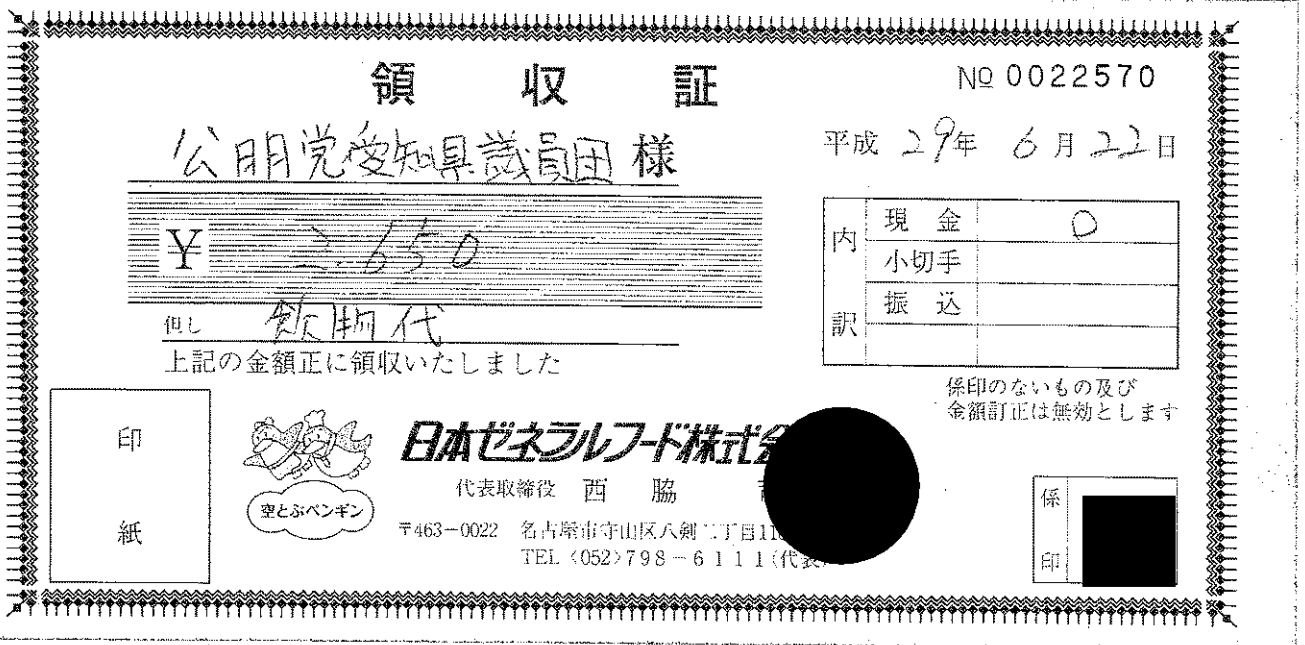 領収証
№ 0022570
公明党愛知県議員団 様
平成 29年 6月 22日
¥ 2,650
但し 飲物代
上記の金額正に領収いたしました
内訳
現金 0
小切手
振込
係印のないもの及び
金額訂正は無効とします
印紙
空とぶペンギン
日本ゼネラルフード株式会
代表取締役 西脇
〒463-0022 名古屋市守山区八剣二丁目11
TEL〈052〉798-6111(代表)
係印